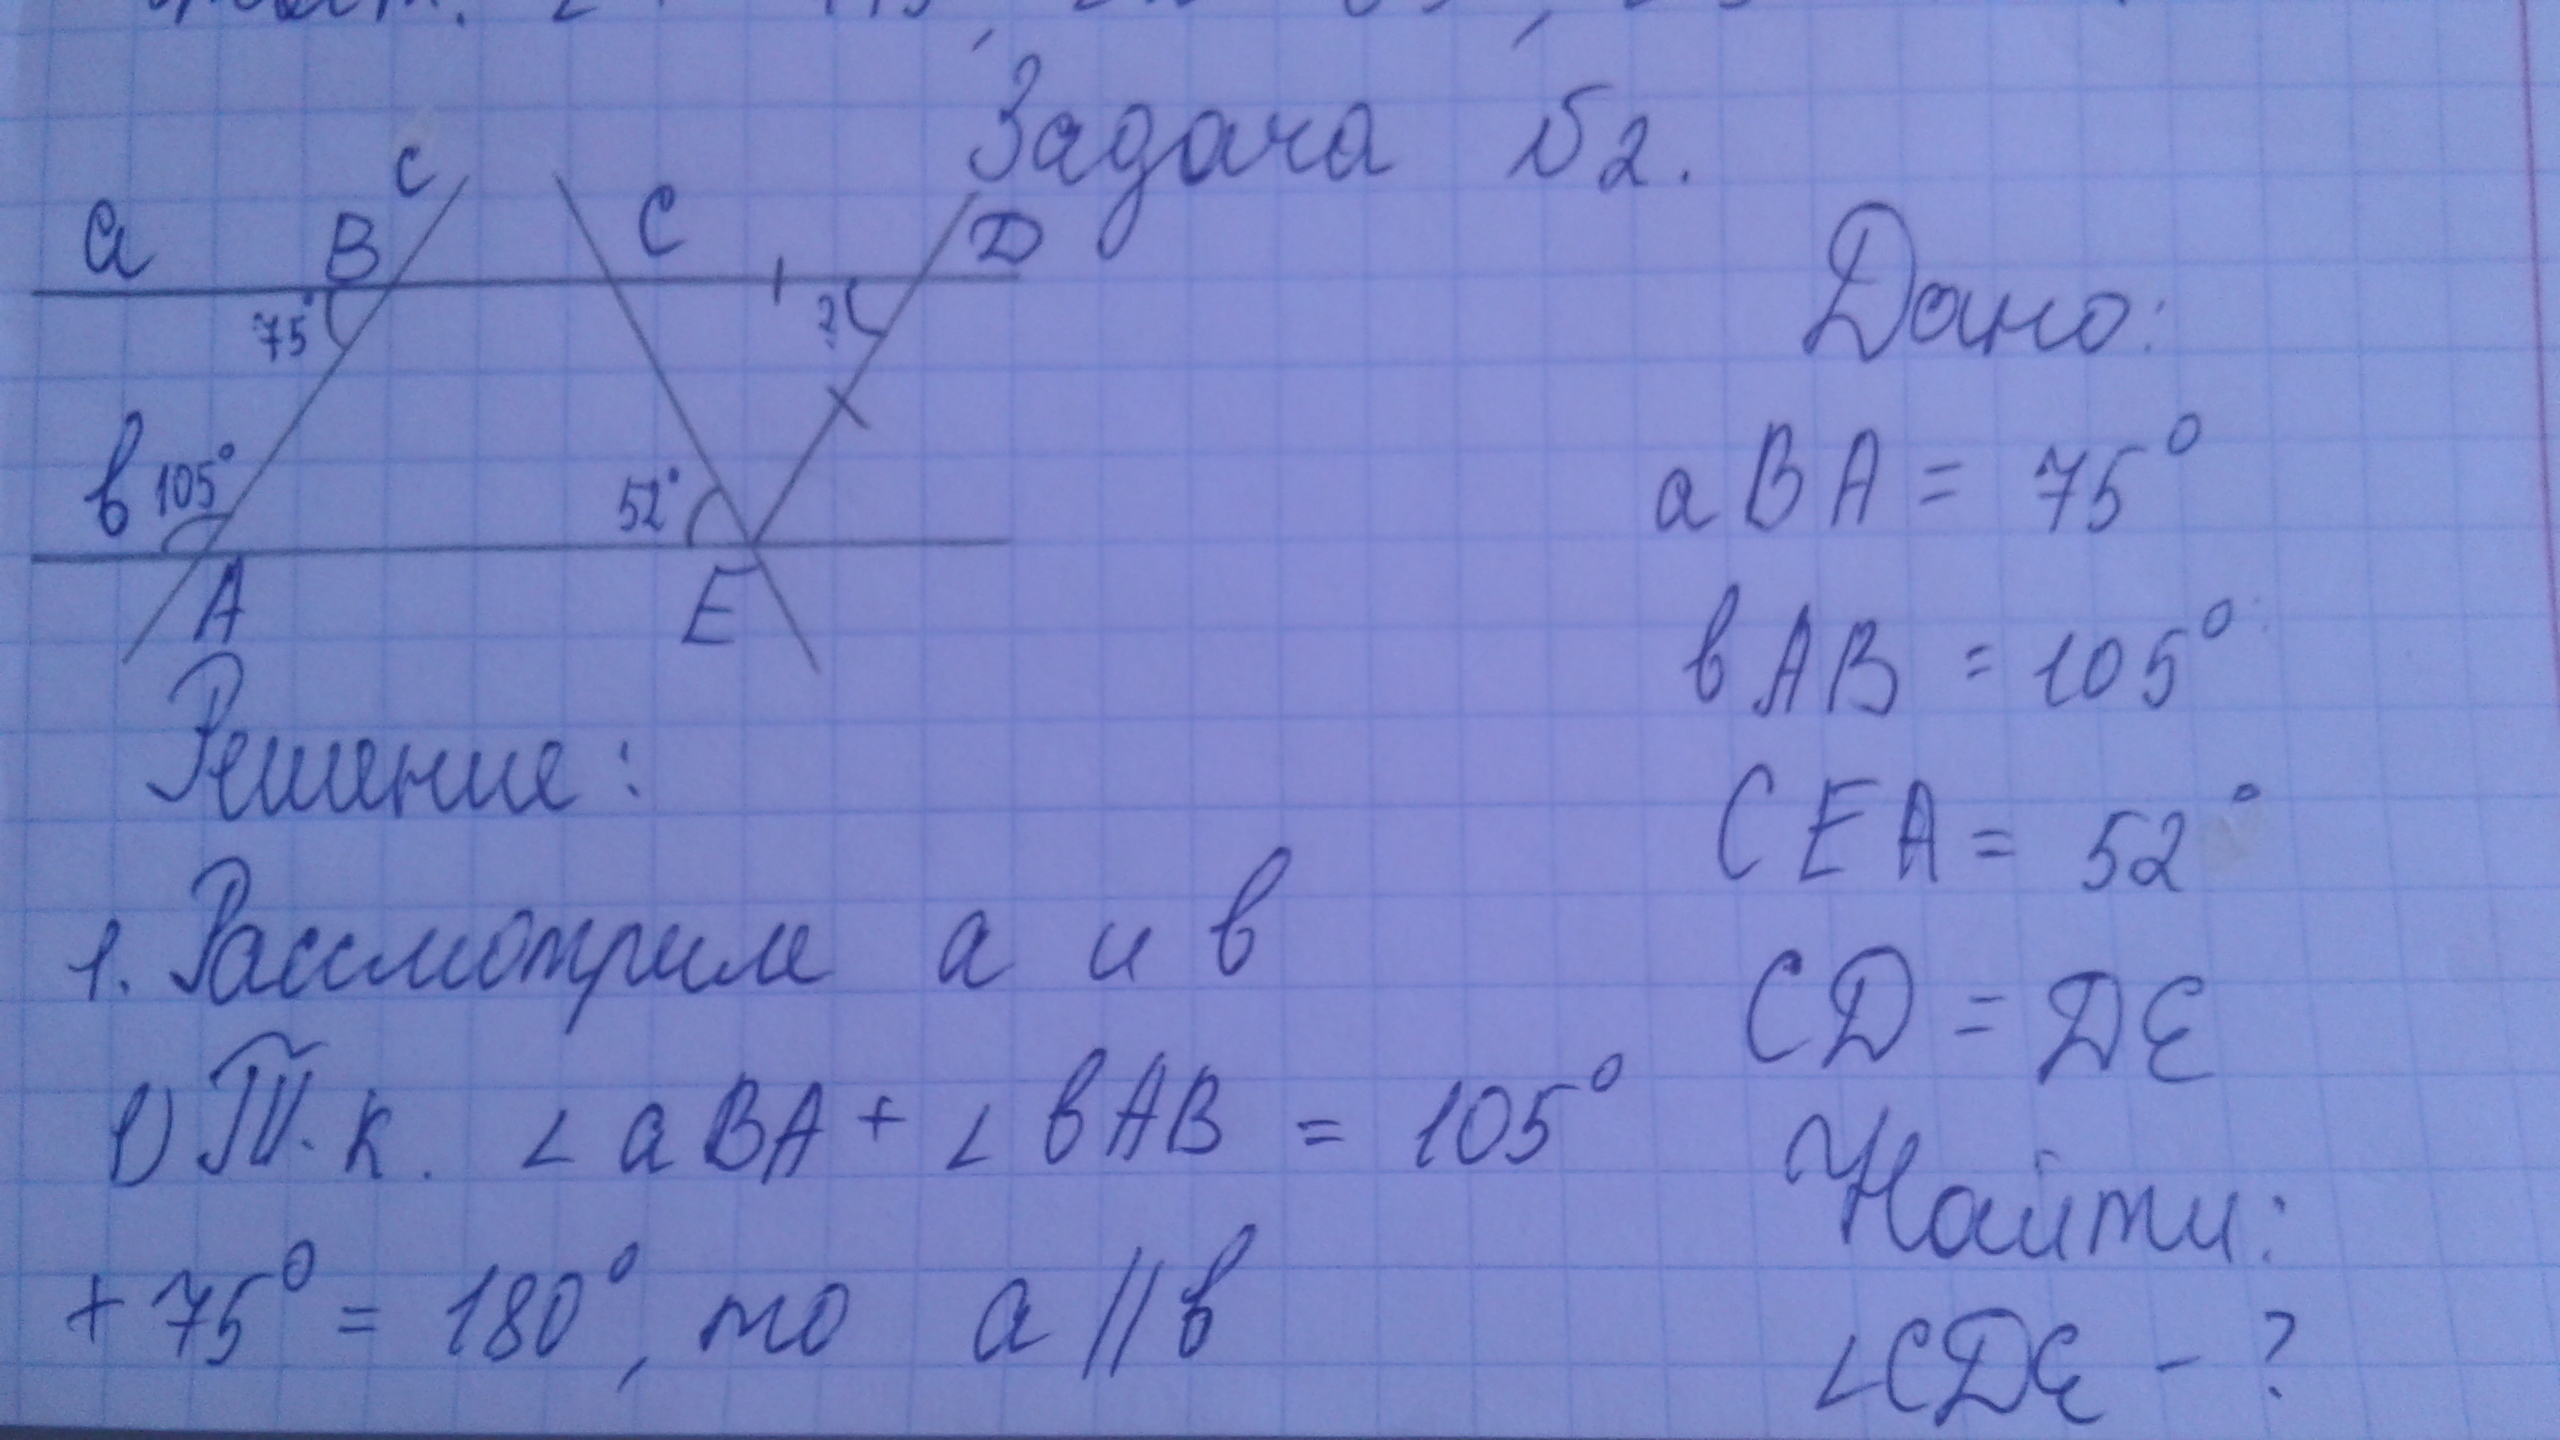 Задача №2.
a
B
c
C
D
75°
?
в
105°
52°
A
E
Дано:
aBA = 75°
вAB = 105°
CEA = 52°
CD = DE
Найти:
∠CDE - ?
Решение:
1. Рассмотрим a и в
1) Т.к. ∠aBA + ∠вAB = 105°
+ 75° = 180°, то a || в